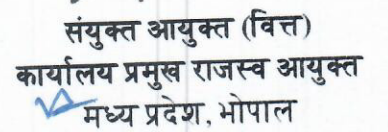 संयुक्त आयुक्त (वित्त)
कार्यालय प्रमुख राजस्व आयुक्त
मध्य प्रदेश, भोपाल